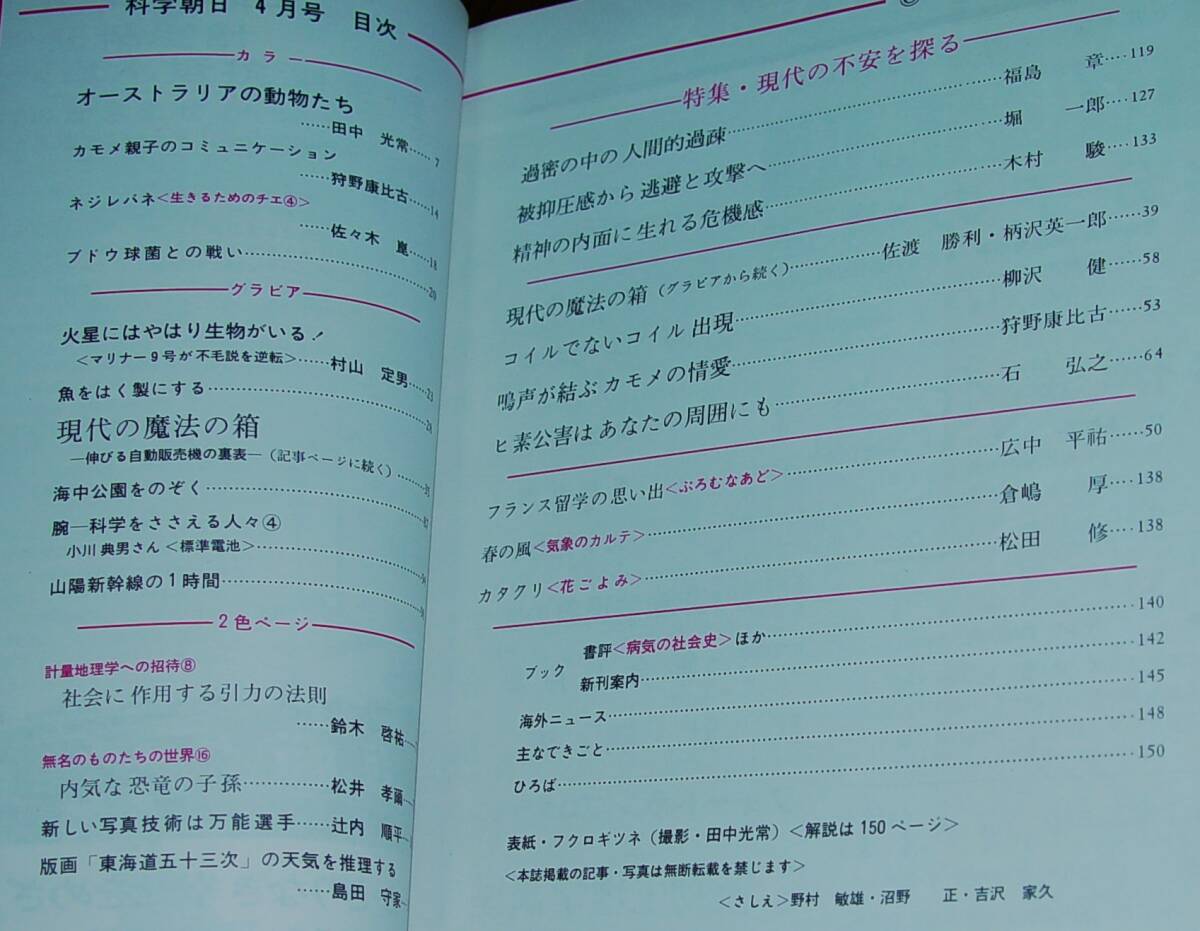 科学朝日 4月号 目次
カラー
オーストラリアの動物たち
……田中 光常……7
カモメ親子のコミュニケーション
……狩野康比古……14
ネジレバネ<生きるためのチエ④>
……佐々木 崑……18
ブドウ球菌との戦い……20
グラビア
火星にはやはり生物がいる!
<マリナー9号が不毛説を逆転>……村山 定男……23
魚をはく製にする……28
現代の魔法の箱
―伸びる自動販売機の裏表―(記事ページに続く)……
海中公園をのぞく……
腕―科学をささえる人々④
小川 典男さん<標準電池>……
山陽新幹線の1時間……
2色ページ
計量地理学への招待⑧
社会に作用する引力の法則
……鈴木 啓祐…
無名のものたちの世界⑯
内気な恐竜の子孫……松井 孝爾…
新しい写真技術は万能選手……辻内 順平…
版画「東海道五十三次」の天気を推理する
……島田 守家…
特集・現代の不安を探る
過密の中の人間的過疎……福島 章……119
被抑圧感から逃避と攻撃へ……堀 一郎……127
精神の内面に生れる危機感……木村 駿……133
現代の魔法の箱(グラビアから続く)……佐渡 勝利・柄沢英一郎……39
コイルでないコイル出現……柳沢 健……58
鳴声が結ぶカモメの情愛……狩野康比古……53
ヒ素公害はあなたの周囲にも……石 弘之……64
フランス留学の思い出<ぷろむなあど>……広中 平祐……50
春の風<気象のカルテ>……倉嶋 厚……138
カタクリ<花ごよみ>……松田 修……138
ブック
書評<病気の社会史>ほか……140
新刊案内……142
海外ニュース……145
主なできごと……148
ひろば……150
表紙・フクロギツネ(撮影・田中光常)<解説は150ページ>
<本誌掲載の記事・写真は無断転載を禁じます>
<さしえ>野村 敏雄・沼野 正・吉沢 家久